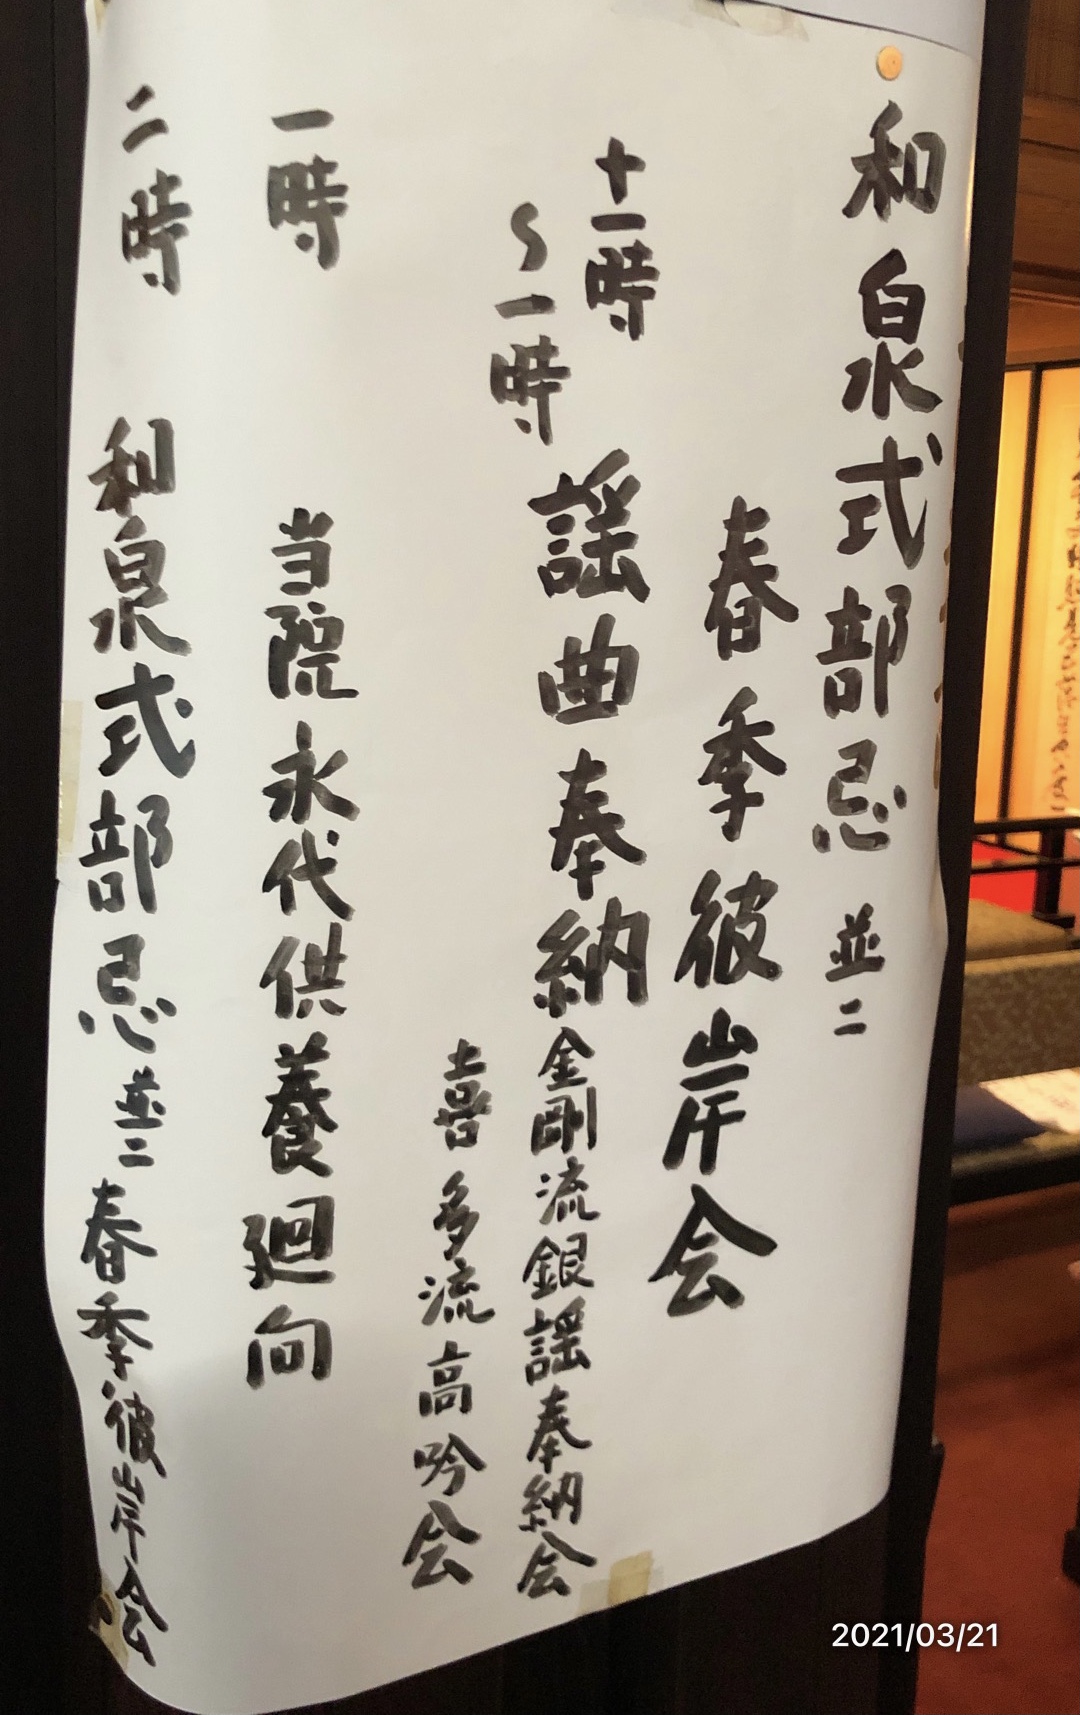 和泉式部忌 並ニ
春季彼岸会
十一時
〜一時
謡曲奉納 金剛流銀謡奉納会
喜多流高吟会
一時 当院永代供養廻向
二時 和泉式部忌 並ニ 春季彼岸会
2021/03/21